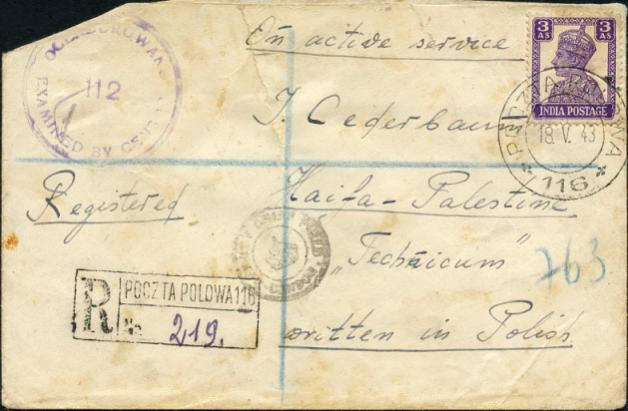 On active service
3 3
AS AS
INDIA POSTAGE
OCENZUROWANO
112
EXAMINED BY CENSOR
POCZTA POLOWA
18.V.43
116
J. Cederbaum
Haifa - Palestine
Registered
"Technicum"
763
R POCZTA POLOWA 116
No 219.
written in Polish